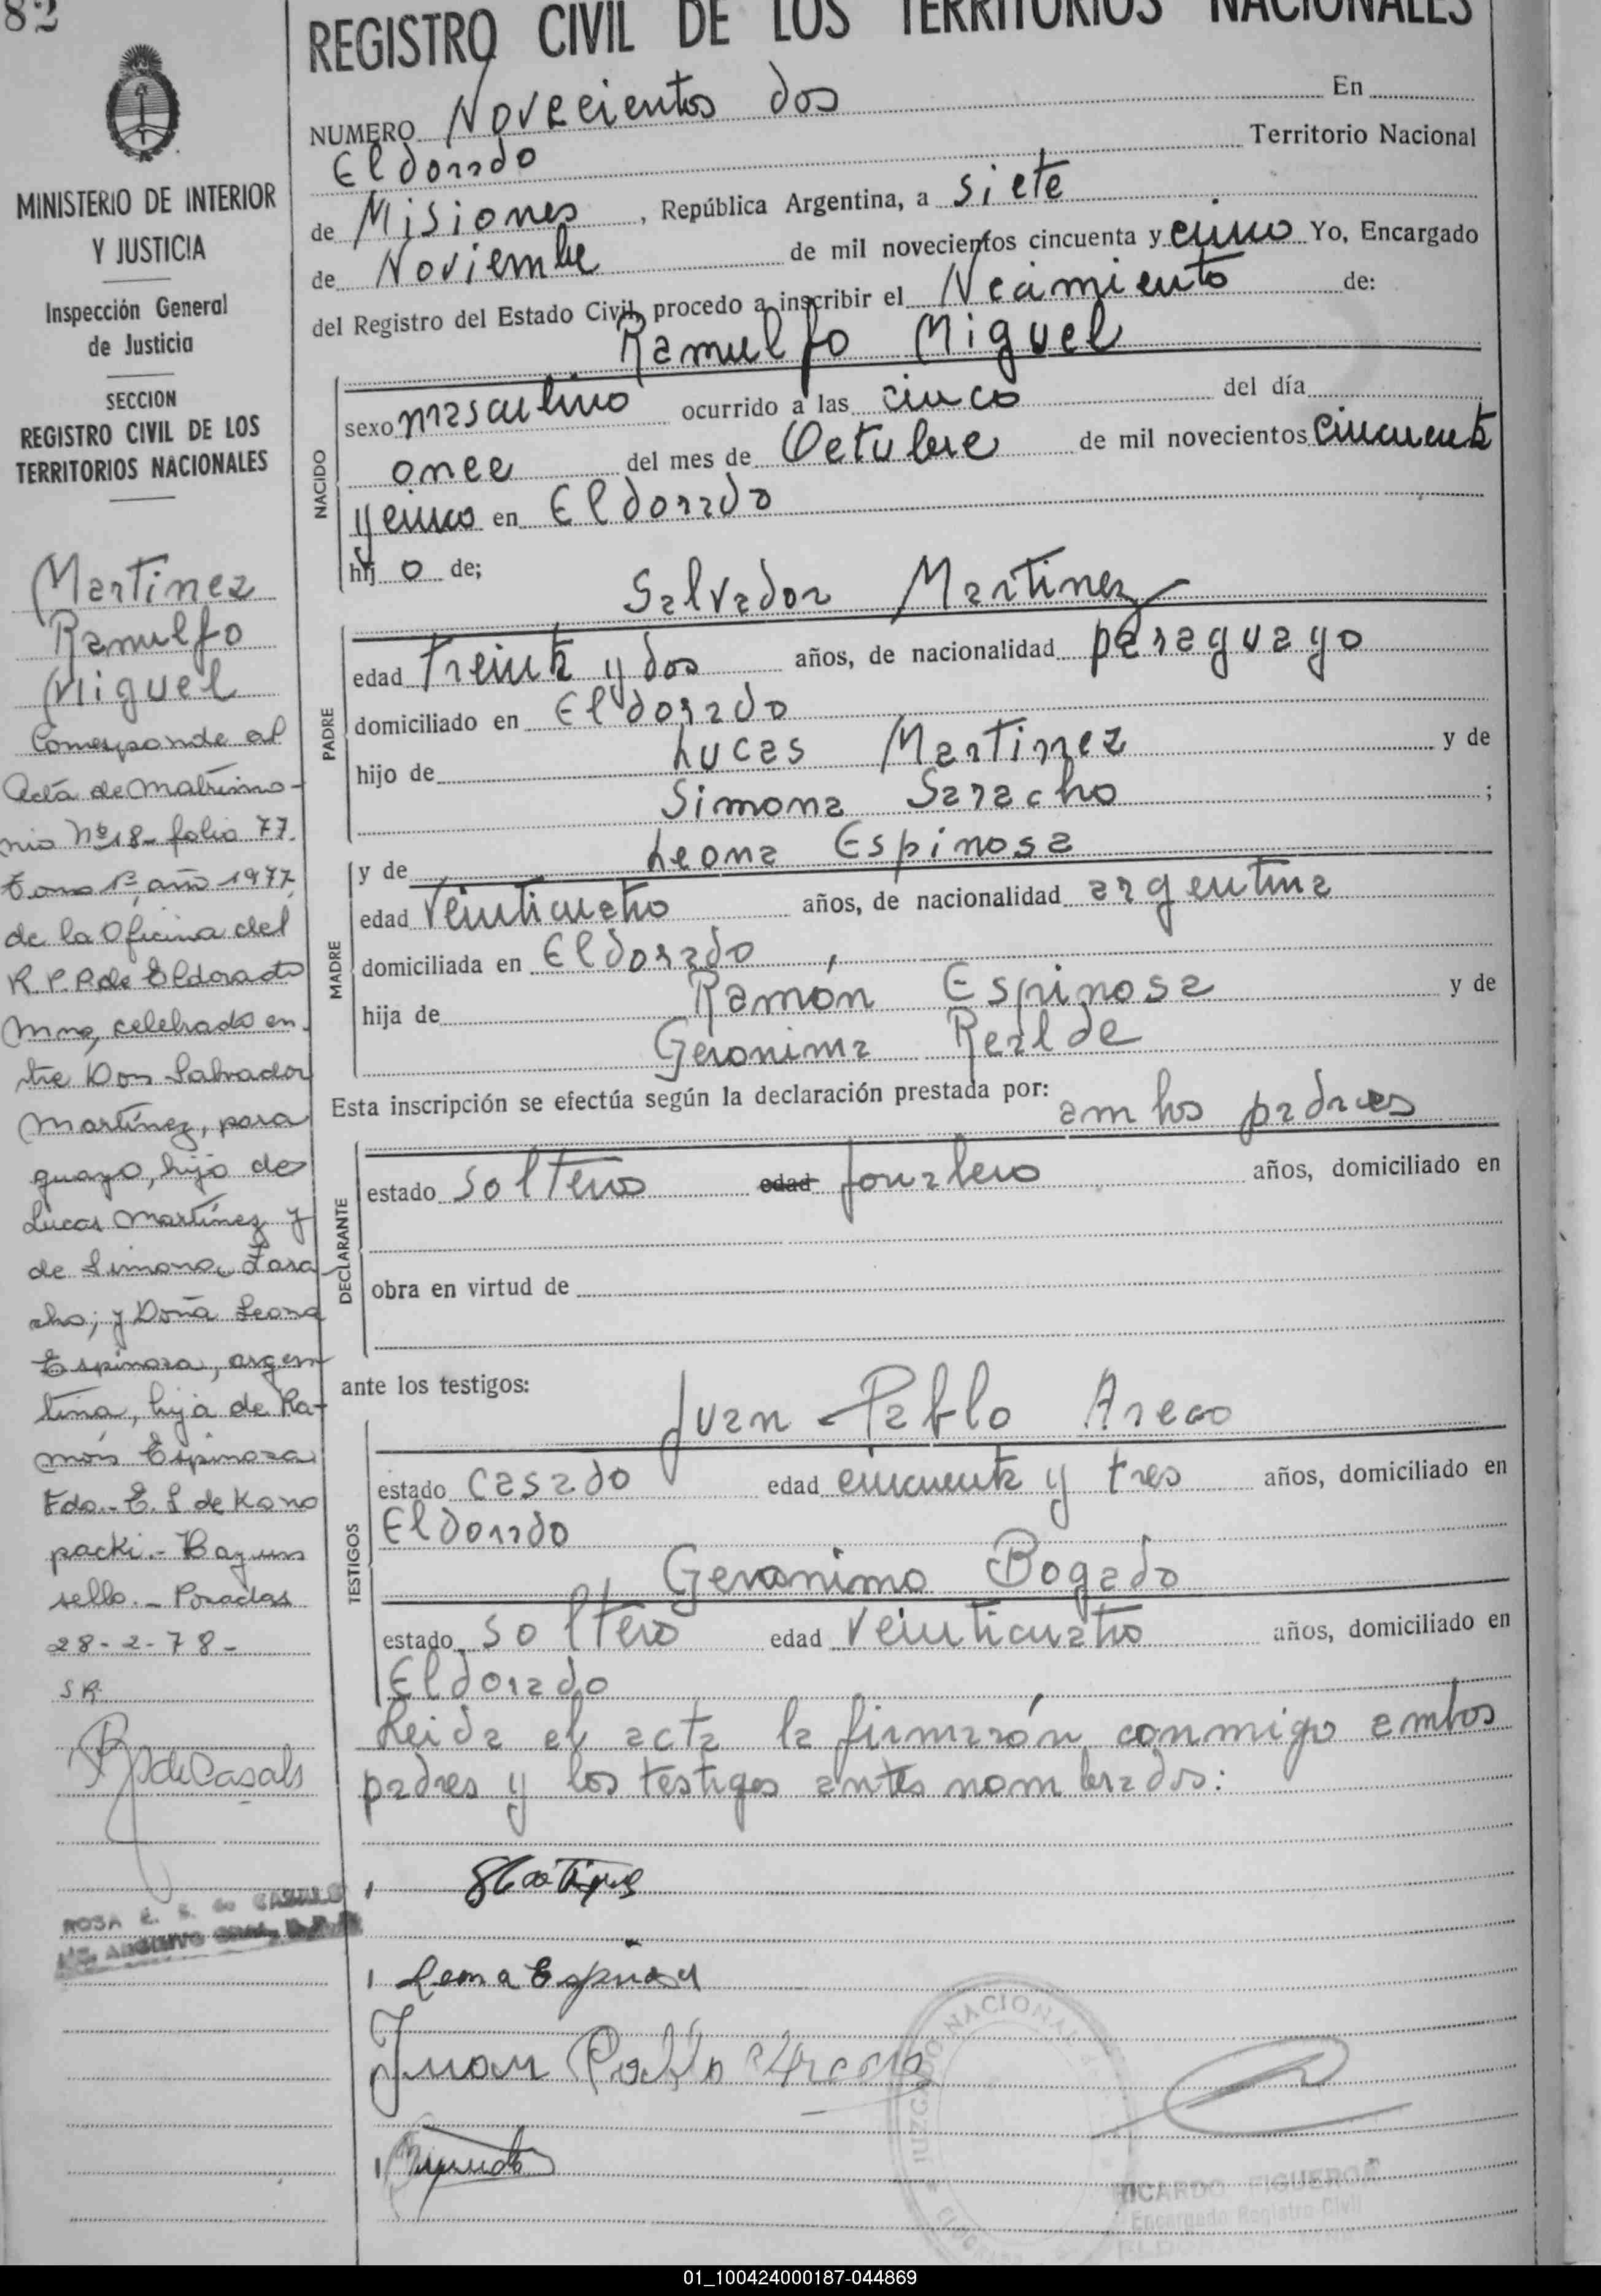 82
REGISTRO CIVIL DE LOS TERRITORIOS NACIONALES
MINISTERIO DE INTERIOR
Y JUSTICIA
Inspección General
de Justicia
SECCION
REGISTRO CIVIL DE LOS
TERRITORIOS NACIONALES
Martinez
Ramulfo
Miguel
Corresponde al
Acta de Matrimo-
nio Nº 18- folio 77.
Tomo 1º año 1977
de la Oficina del
R. P. P. de Eldorado
Mnes, celebrado en-
tre Don Salvador
Martínez, para
guayo, hijo de
Lucas Martínez y
de Simona Zara
cho; y Doña Leona
Espinoza, argen
tina, hija de Ra-
món Espinoza
Fdo.- E. S. de Kono
packi.- Hay un
sello.- Posadas
28-2-78-
SR.
R S de Casals
ROSA E. S. de CASALS
NUMERO Novecientos dos En
Eldorado Territorio Nacional
de Misiones, República Argentina, a siete
de Noviembre de mil novecientos cincuenta y cinco Yo, Encargado
del Registro del Estado Civil, procedo a inscribir el Ncamiento de:
Ramulfo Miguel
NACIDO
sexo masculino ocurrido a las cinco del día
once del mes de Octubre de mil novecientos cincuenta
y cinco en Eldorado
hij o de;
Salvador Martinez
PADRE
edad treinta y dos años, de nacionalidad paraguayo
domiciliado en Eldorado
hijo de Lucas Martinez y de
Simona Saracho ;
y de Leona Espinosa
MADRE
edad veinticuatro años, de nacionalidad argentina
domiciliada en Eldorado
hija de Ramón Espinosa y de
Geronima Realde
Esta inscripción se efectúa según la declaración prestada por: ambos padres
DECLARANTE
estado solteros edad jornalero años, domiciliado en
obra en virtud de
ante los testigos:
Juan Pablo Areco
TESTIGOS
estado casado edad cincuenta y tres años, domiciliado en
Eldorado
Geronimo Bogado
estado soltero edad veinticuatro años, domiciliado en
Eldorado
Leida el acta la firmarón conmigo ambos
padres y los testigos antes nombrados:
Leona Espinosa
Juan Pablo Areco
JUZGADO NACIONAL
RICARDO FIGUEROA
Encargado Registro Civil
ELDORADO
01_100424000187-044869